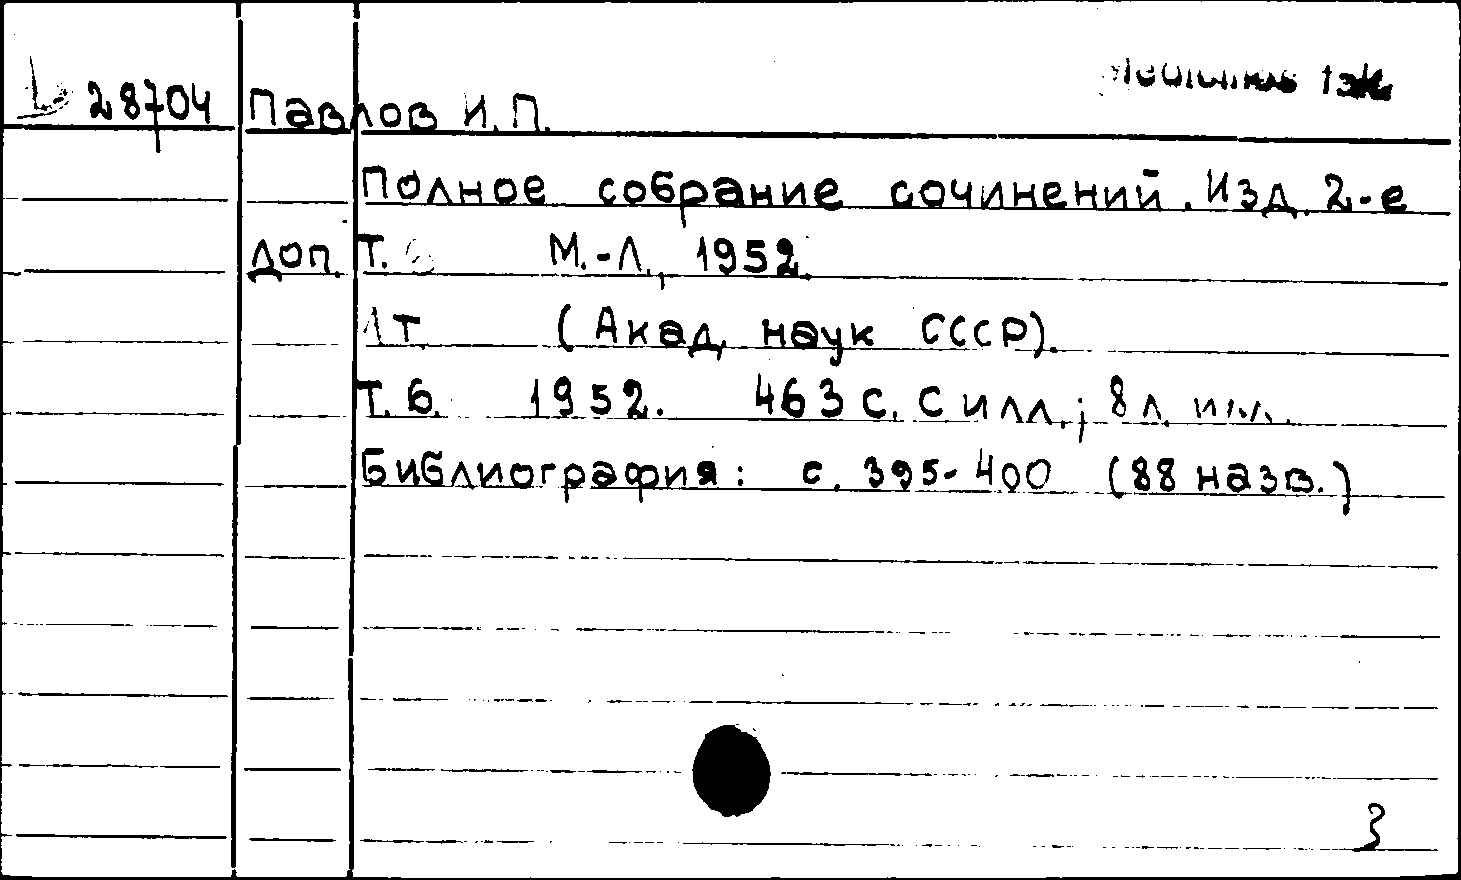 28704 Павлов И. П.
Полное собрание сочинений. Изд. 2-е
доп. Т. 6 М.-Л., 1952.
1 т. (Акад. наук СССР).
Т. 6. 1952. 463 с. с илл.; 8 л. илл.
Библиография: с. 395-400 (88 назв.)
3